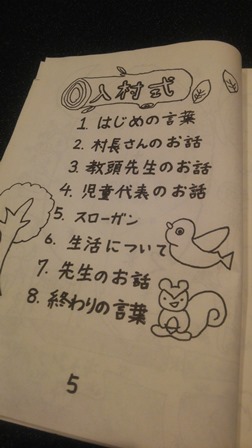 入村式
1. はじめの言葉
2. 村長さんのお話
3. 教頭先生のお話
4. 児童代表のお話
5. スローガン
6. 生活について
7. 先生のお話
8. 終わりの言葉
5